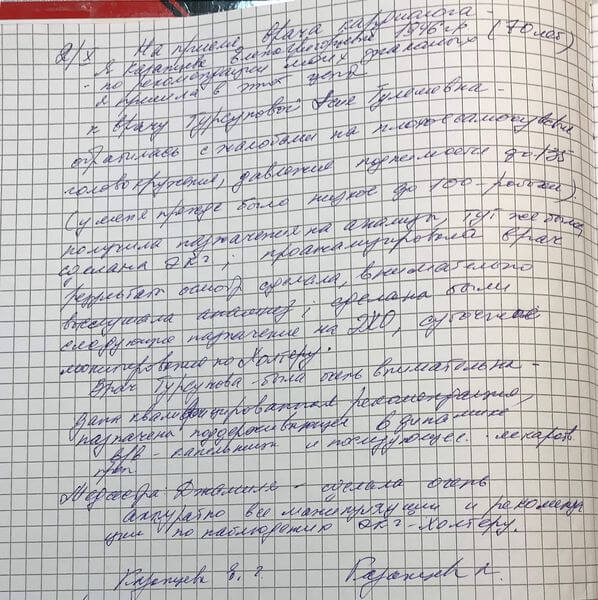 2/X На приеме врача кардиолога -
Я Казанцева Елена Григорьевна 1946 г.р. (70 лет)
- по рекомендации моих знакомых
я пришла в этот центр
к врачу Турсуновой Асие Тулешовна -
обратилась с жалобами на плохое самочувствие
головокружение, давление поднимается до 135
(у меня прежде было низкое до 100 - рабочее).
получила назначения на анализы, тут же была
сделана ЭКГ; проанализировала врач
результат осмотр сделала, внимательно
выслушала анамнез; сделаны были
следующие назначение на ЭХО, суточное
мониторование по Холтеру.
Врач Турсунова была очень внимательна -
дала квалифицированные рекомендации,
назначены поддерживающее в динамике
в/в - капельниц и последующее лекарств.
Медсестра Джамиля - сделала очень
аккуратно все манипуляции и рекоменда
ции по наблюдению ЭКГ - Холтеру.
Казанцева Е. Г. Казанцева